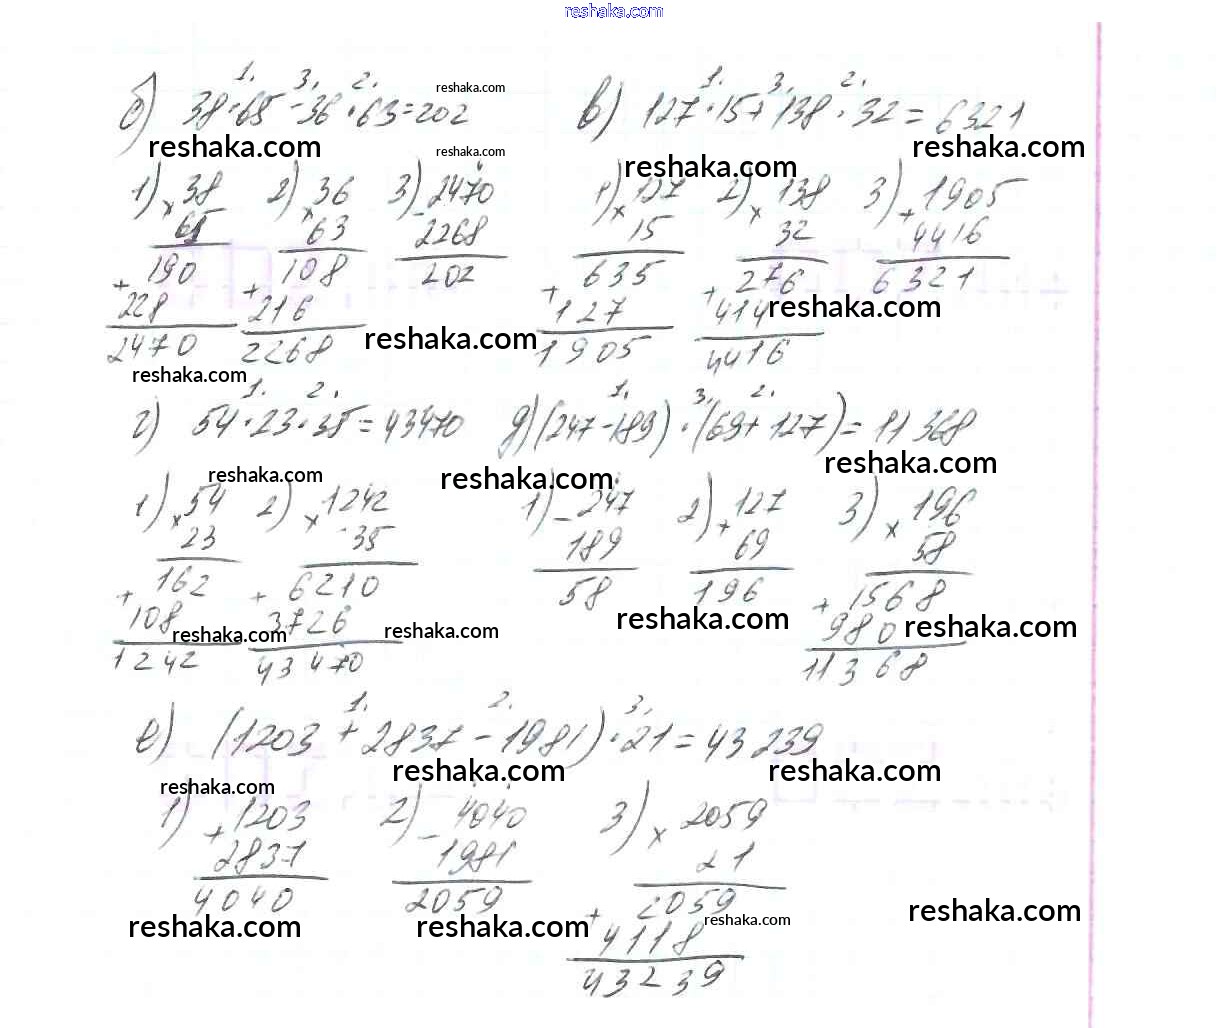 reshaka.com
1. 3. 2. 1. 3. 2.
б) 38·65-36·63=202 reshaka.com в) 127·15+138·32=6321
reshaka.com reshaka.com reshaka.com reshaka.com
1) × 38 2) × 36 3) - 2470 1) × 127 2) × 138 3) + 1905
65 63 2268 15 32 4416
190 108 202 635 276 6321
+ 228 + 216 + 127 + 414 reshaka.com
2470 2268 reshaka.com 1905 4416
reshaka.com
1. 2. 1. 3. 2.
г) 54·23·35=43470 д) (247-189)·(69+127)=11368
reshaka.com reshaka.com reshaka.com
1) × 54 2) × 1242 1) - 247 2) + 127 3) × 196
23 35 189 69 58
162 6210 58 196 1568
+ 108 + 3726 + 980
reshaka.com reshaka.com reshaka.com reshaka.com
1242 43470 11368
1. 2. 3.
е) (1203+2837-1981)·21=43239
reshaka.com reshaka.com reshaka.com
1) + 1203 2) - 4040 3) × 2059
2837 1981 21
4040 2059 2059
reshaka.com reshaka.com reshaka.com reshaka.com
+ 4118
43239